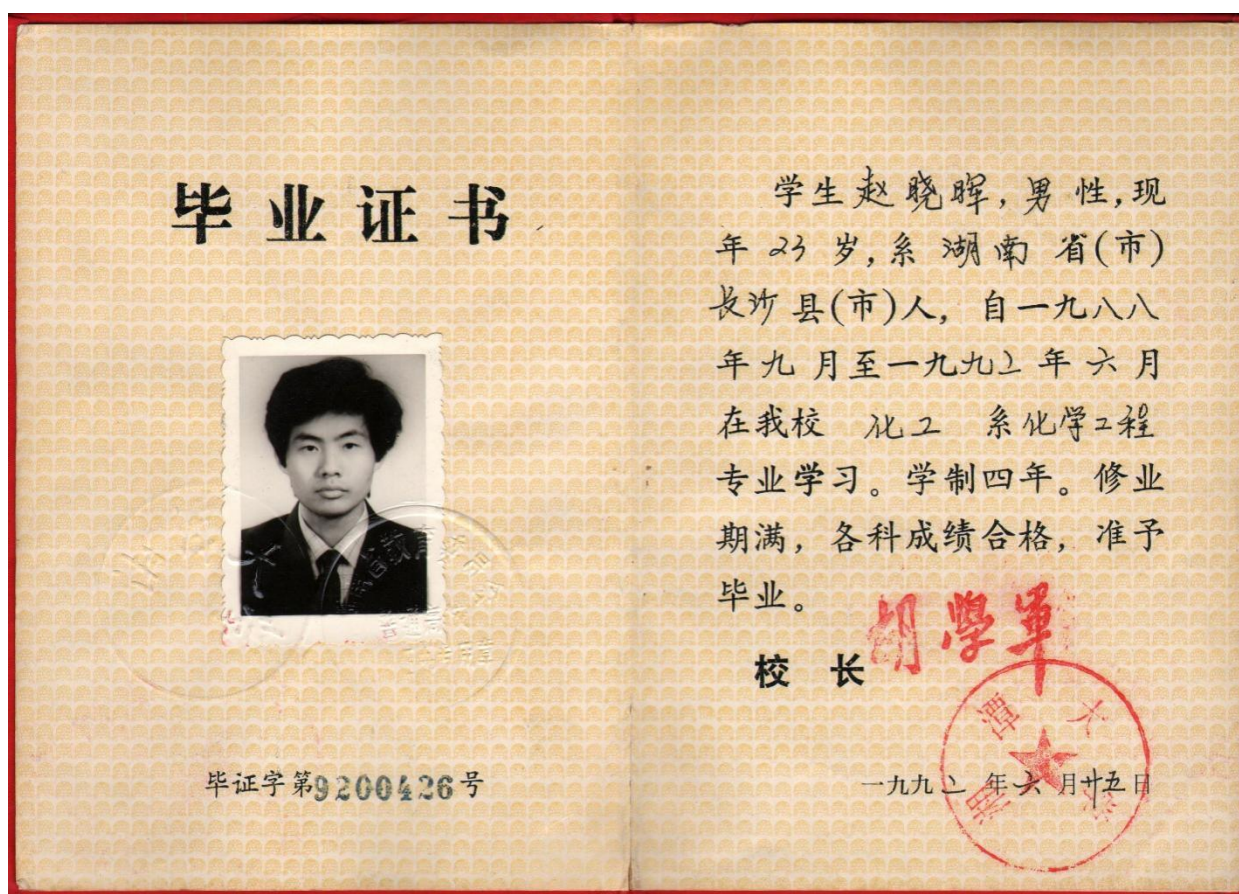 毕业证书
湖南省教育委员会
毕证字第9200426号
学生赵晓晖，男性，现
年 23 岁，系 湖南 省(市)
长沙县(市)人，自一九八八
年九月至一九九二年六月
在我校 化工 系化学工程
专业学习。学制四年。修业
期满，各科成绩合格，准予
毕业。
校 长 胡學軍
湘潭大学
一九九二年六月廿五日